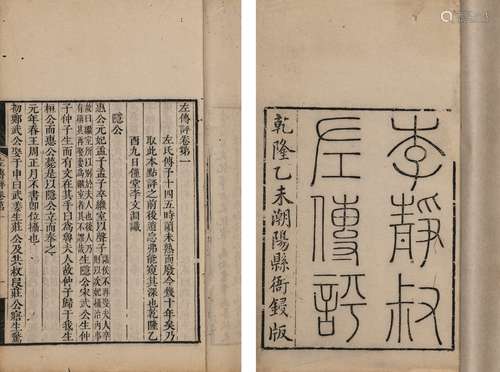 李靜叔
左傳評
乾隆乙未潮陽縣衙鋟版
左傳評卷第一
左氏傳予十四五時未熟而廢今幾十年矣乃
取此本點評之前後遺忘弗能窺其深也乾隆乙
酉九日僅堂李文淵識
隱公
惠公元妃孟子孟子卒繼室以聲子諸侯不再娶夫人卒則以次妃攝治內事
故曰繼室所以別於夫人也生隱公宋武公生仲
子仲子生而有文在其手曰為魯夫人故仲子歸于我生
桓公而惠公薨是以隱公立而奉之
元年春王周正月不書即位攝也
初鄭武公娶于申曰武姜生莊公及共叔段莊公寤生驚
易拍全球